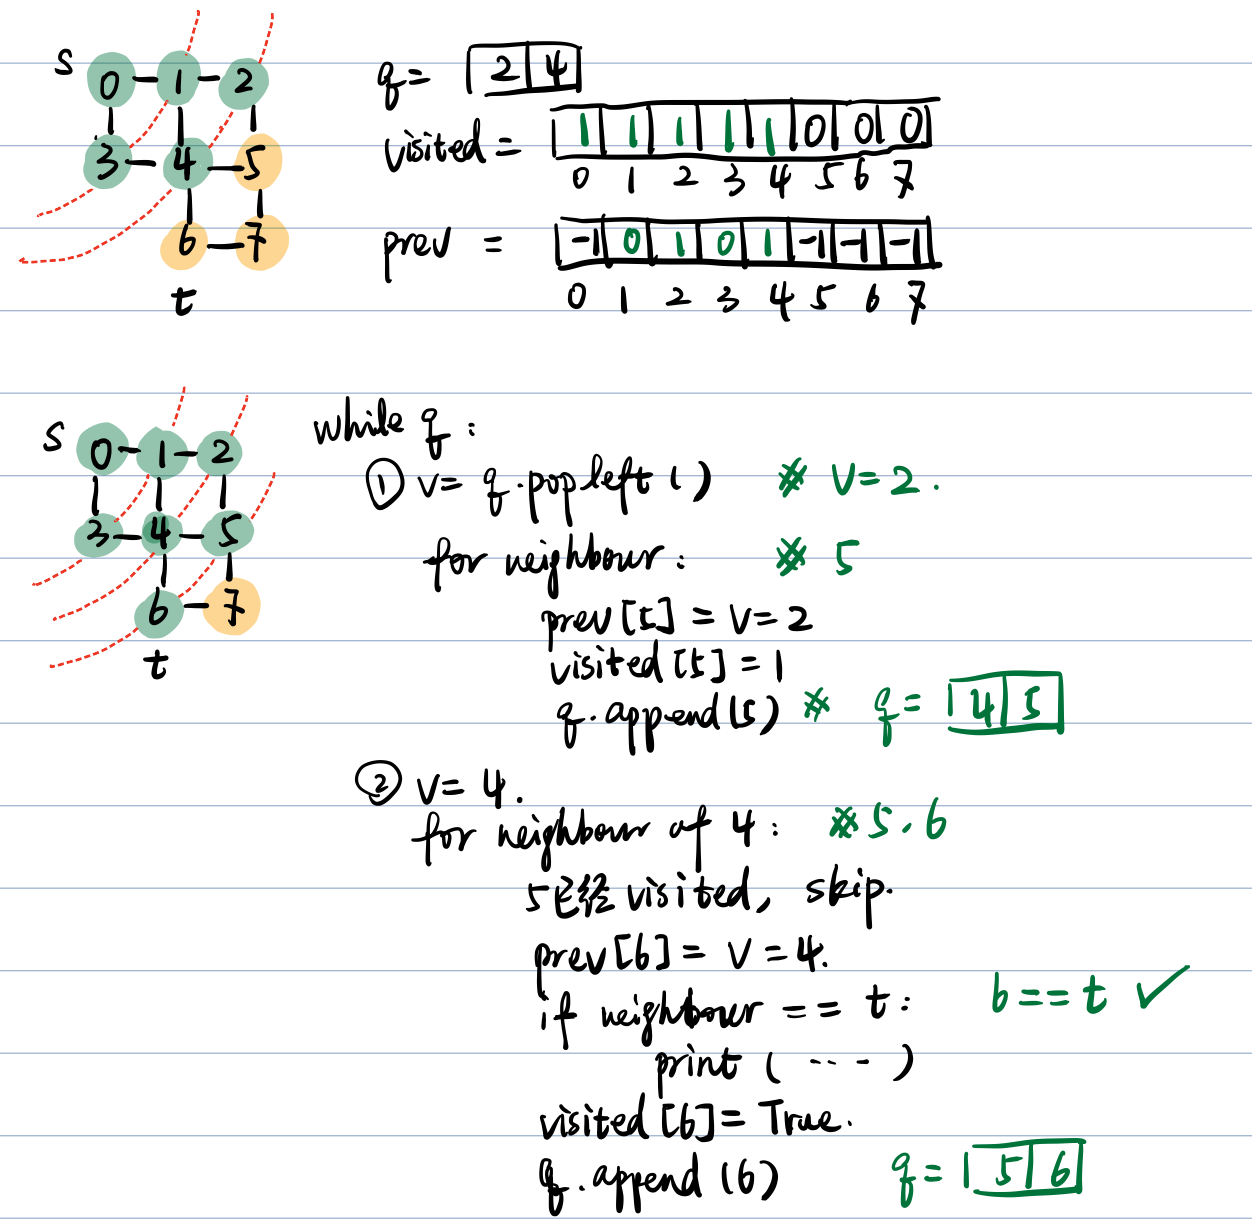 S 0 1 2
3 4 5
6 7
t
q = 2 4
visited = 1 1 1 1 1 0 0 0
0 1 2 3 4 5 6 7
prev = -1 0 1 0 1 -1 -1 -1
0 1 2 3 4 5 6 7
S 0 1 2
3 4 5
6 7
t
while q :
① v = q.popleft ( ) # v = 2 .
for neighbour : # 5
prev [5] = v = 2
visited [5] = 1
q.append (5) # q = 4 5
② v = 4 .
for neighbour of 4 : # 5 . 6
5已经 visited, skip.
prev [6] = v = 4.
if neighbour == t : 6 == t ✓
print ( ---- )
visited [6] = True.
q.append (6) q = 5 6